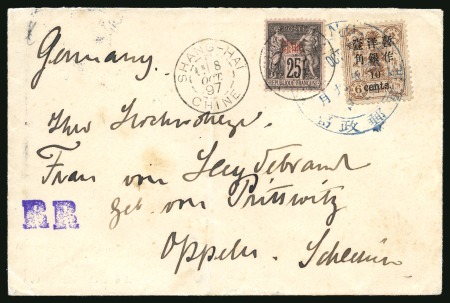 Germany.
SHANG-HAI
8
OCT
97
CHINE
25
暫作洋銀壹角
10
cents.
郵政局
月
Ihro Hochwohlgeb.
Frau von Heydebrand
geb von Prittwitz
RR
Oppeln. Schlesien